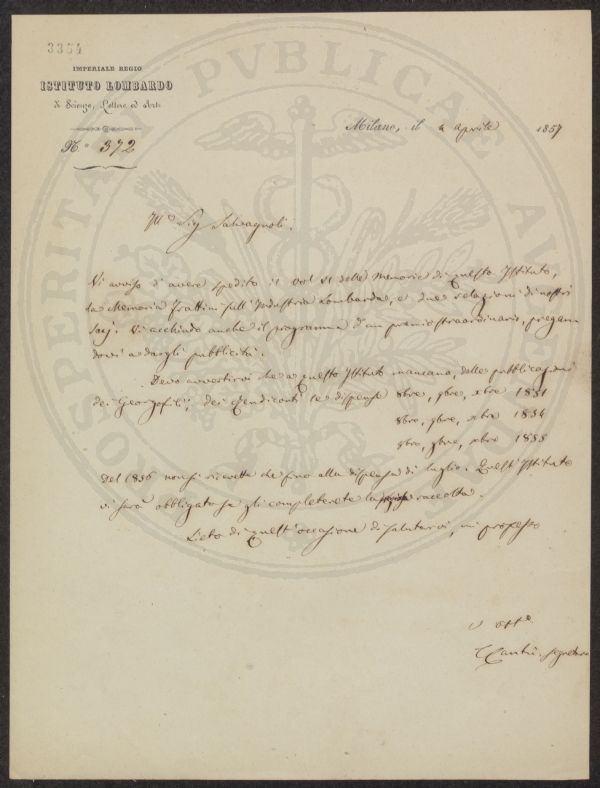 3364
IMPERIALE REGIO
ISTITUTO LOMBARDO
di Scienze, Lettere ed Arti
N.° 372
Milano, il 2 aprile 1857
Ill.o Sig Salvagnoli.
Vi avviso d'avere spedito il vol VI delle Memorie di questo Istituto,
la Memoria Frattini sull'Industria Lombarda, e due relazioni di nostri
Socj. Vi acchiudo anche il programma d'un premio straordinario, pregan
dovi a dargli pubblicità.
Devo avvertirvi che a questo Istituto mancano, delle pubblicazioni
dei Georgofili, dei Rendiconti le dispense 8bre, 9bre, xbre 1851
8bre, 9bre, xbre 1854
8bre, 9bre, xbre 1855
Del 1856 non si ricevette che fino alla dispensa di luglio. Quest'Istituto
vi sarà obbligato se gli completerete la raccolta.
Lieto di quest'occasione di salutarvi, mi professo
V Aff.o
C Cantù, segretario
PROSPERITATI PVBLICAE AVGENDAE